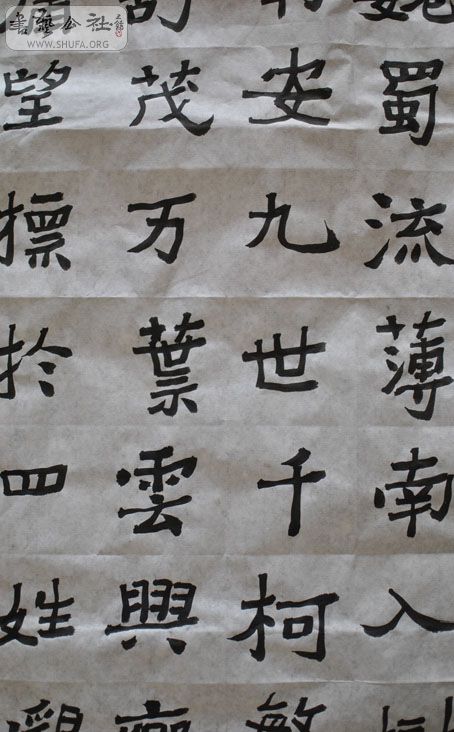 書藝公社
WWW.SHUFA.ORG
蜀流薄南入
安九世千柯
茂万葉雲興
望標於四姓